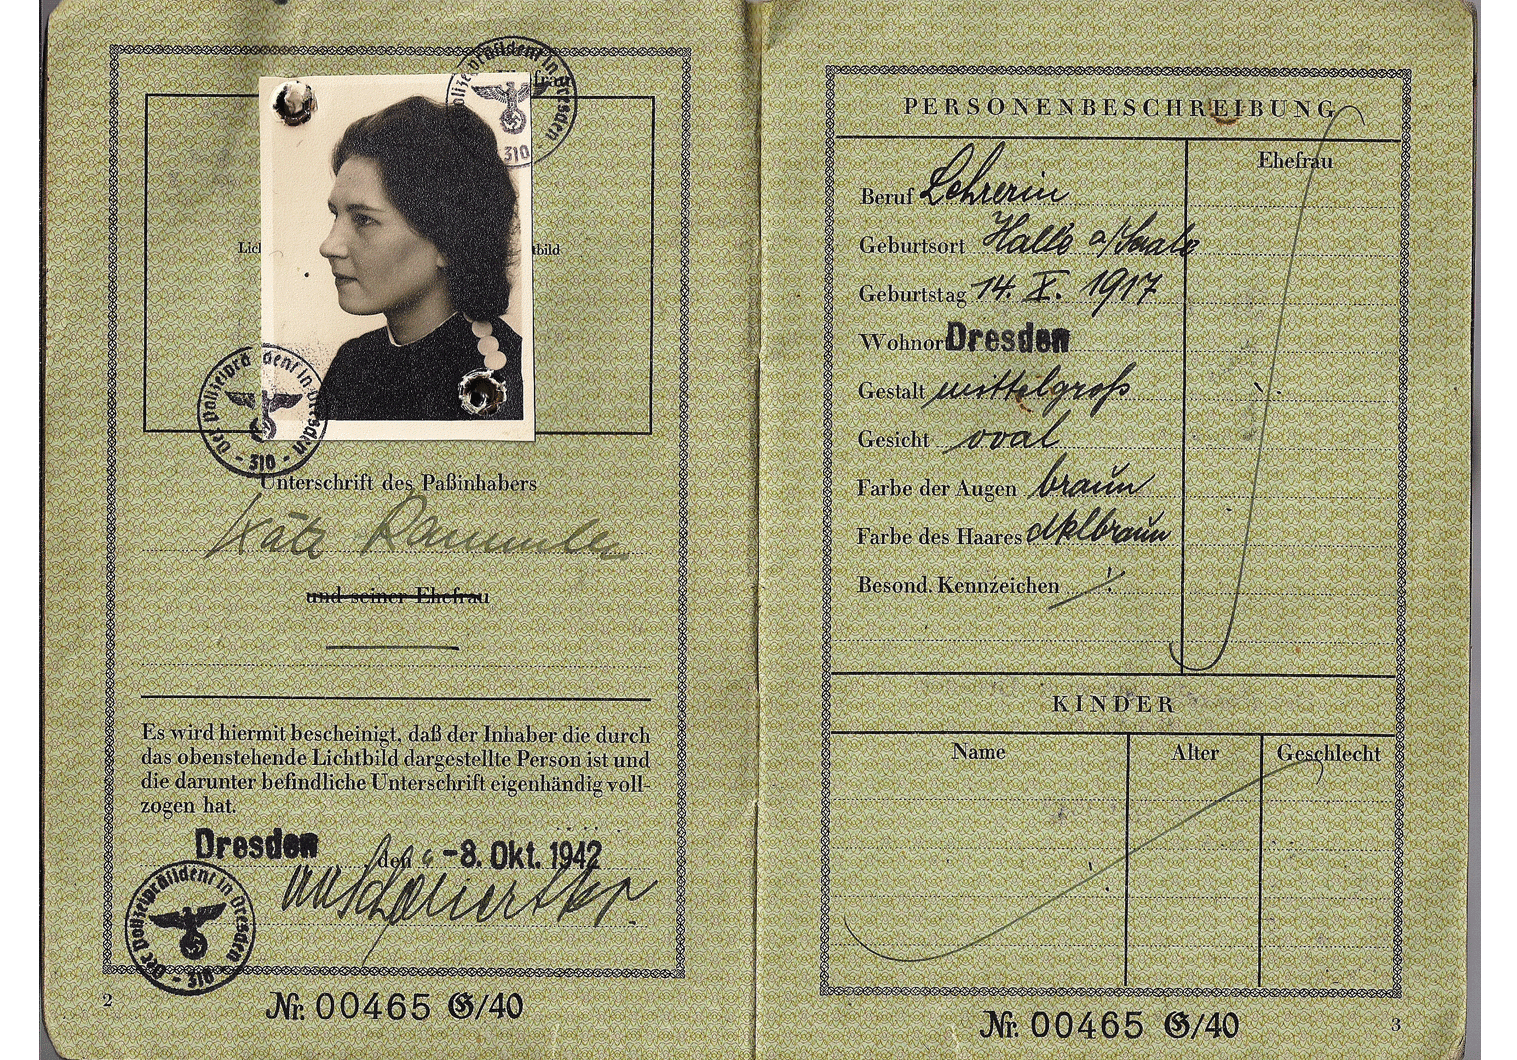 Der Polizeipräsident in Dresden
310
Der Polizeipräsident in Dresden
- 310 -
Unterschrift des Paßinhabers
Käte Rammler
und seiner Ehefrau
Es wird hiermit bescheinigt, daß der Inhaber die durch
das obenstehende Lichtbild dargestellte Person ist und
die darunter befindliche Unterschrift eigenhändig voll-
zogen hat.
Dresden den -8. Okt. 1942
Der Polizeipräsident in Dresden
- 310 -
2
Nr. 00465 G/40
PERSONENBESCHREIBUNG
Ehefrau
Beruf Lehrerin
Geburtsort Halle a/Saale
Geburtstag 14. X. 1917
Wohnor Dresden
Gestalt mittelgroß
Gesicht oval
Farbe der Augen braun
Farbe des Haares dklbraun
Besond. Kennzeichen ./.
KINDER
Name Alter Geschlecht
Nr. 00465 G/40
3